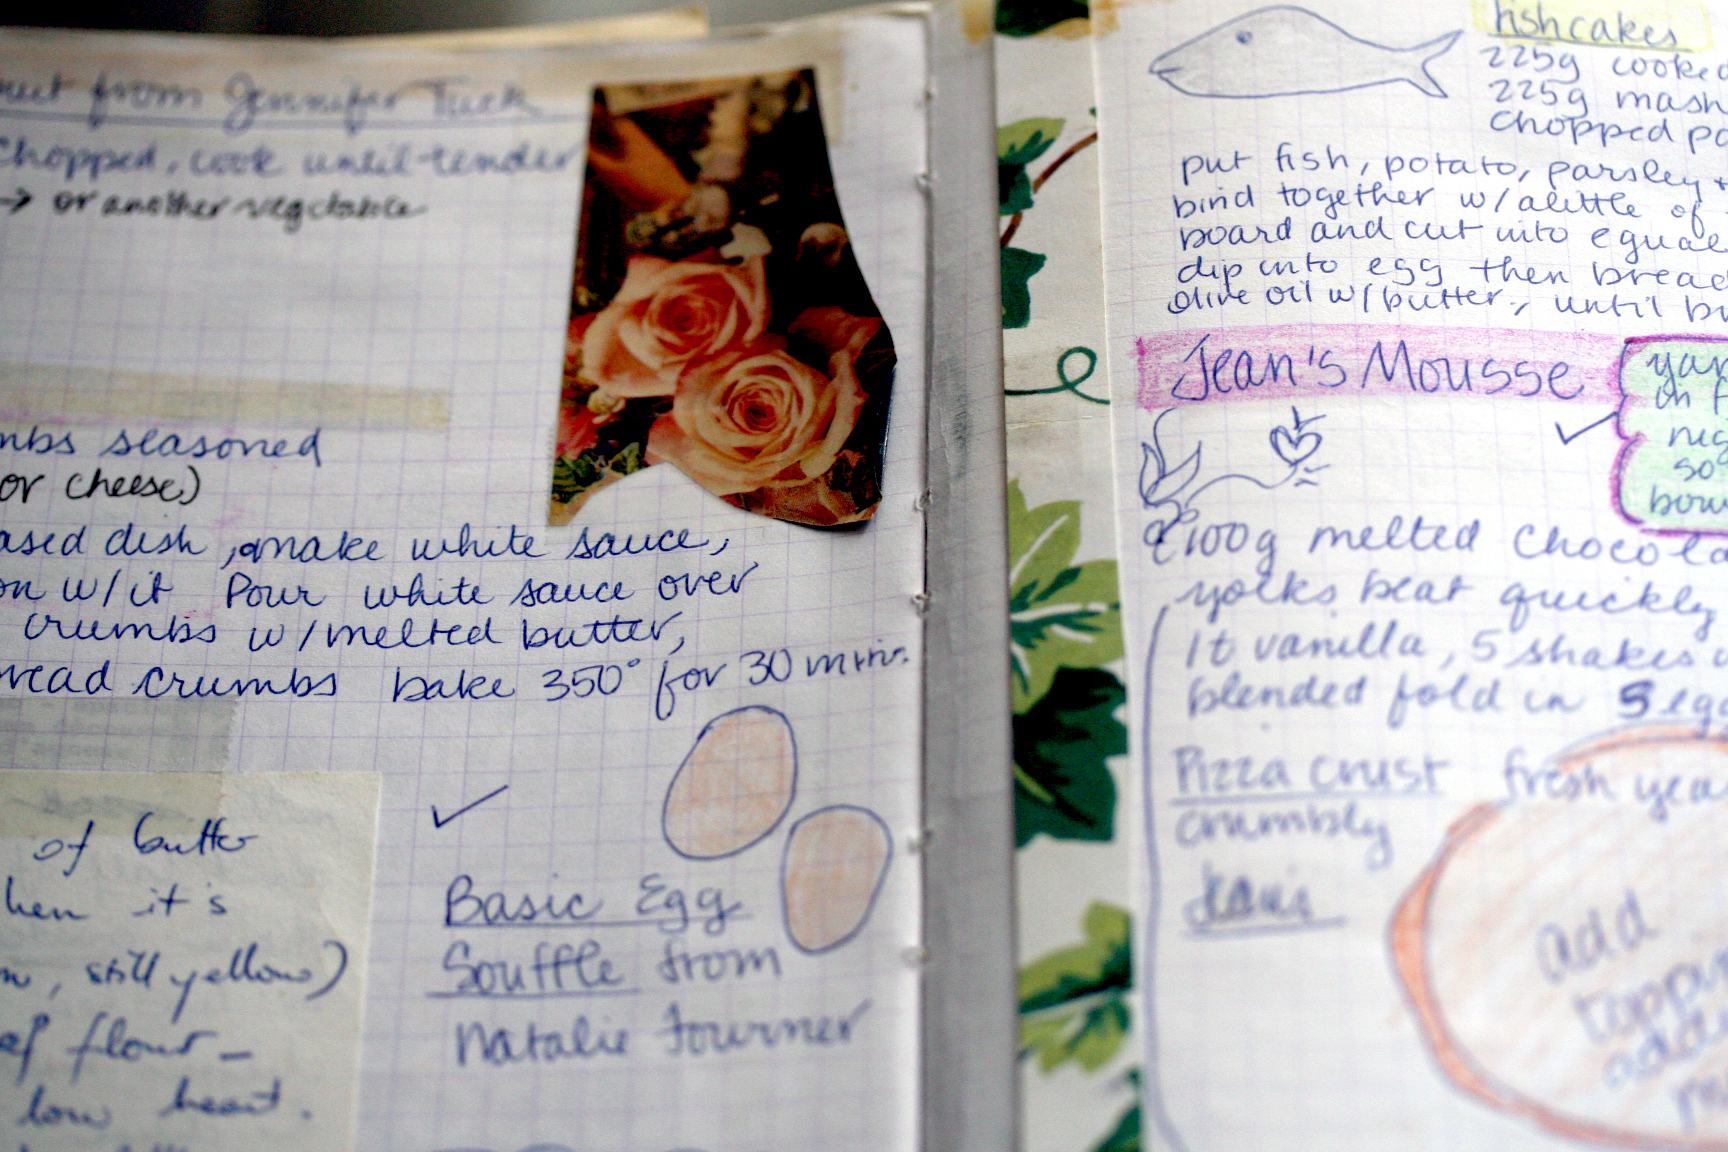 from Jennifer Tuck
Chopped, cook until tender
→ or another vegetable
mbs seasoned
or cheese)
ased dish, make white sauce,
on w/it Pour white sauce over
crumbs w/melted butter,
read crumbs bake 350° for 30 mins.
of butter
hen it's
n, still yellow)
of flour –
low heat.
Basic Egg
Souffle from
Natalie Fournier
fishcakes
225g cooked
225g mash
chopped pa
put fish, potato, parsley +
bind together w/a little of
board and cut into equal
dip into egg then bread
olive oil w/butter, until br
Jean's Mousse
on f
nig
so
bow
100g melted chocola
yolks beat quickly
1t vanilla, 5 shakes
blended fold in 5 egg
Pizza crust fresh yea
crumbly
Jean's
add
toppin